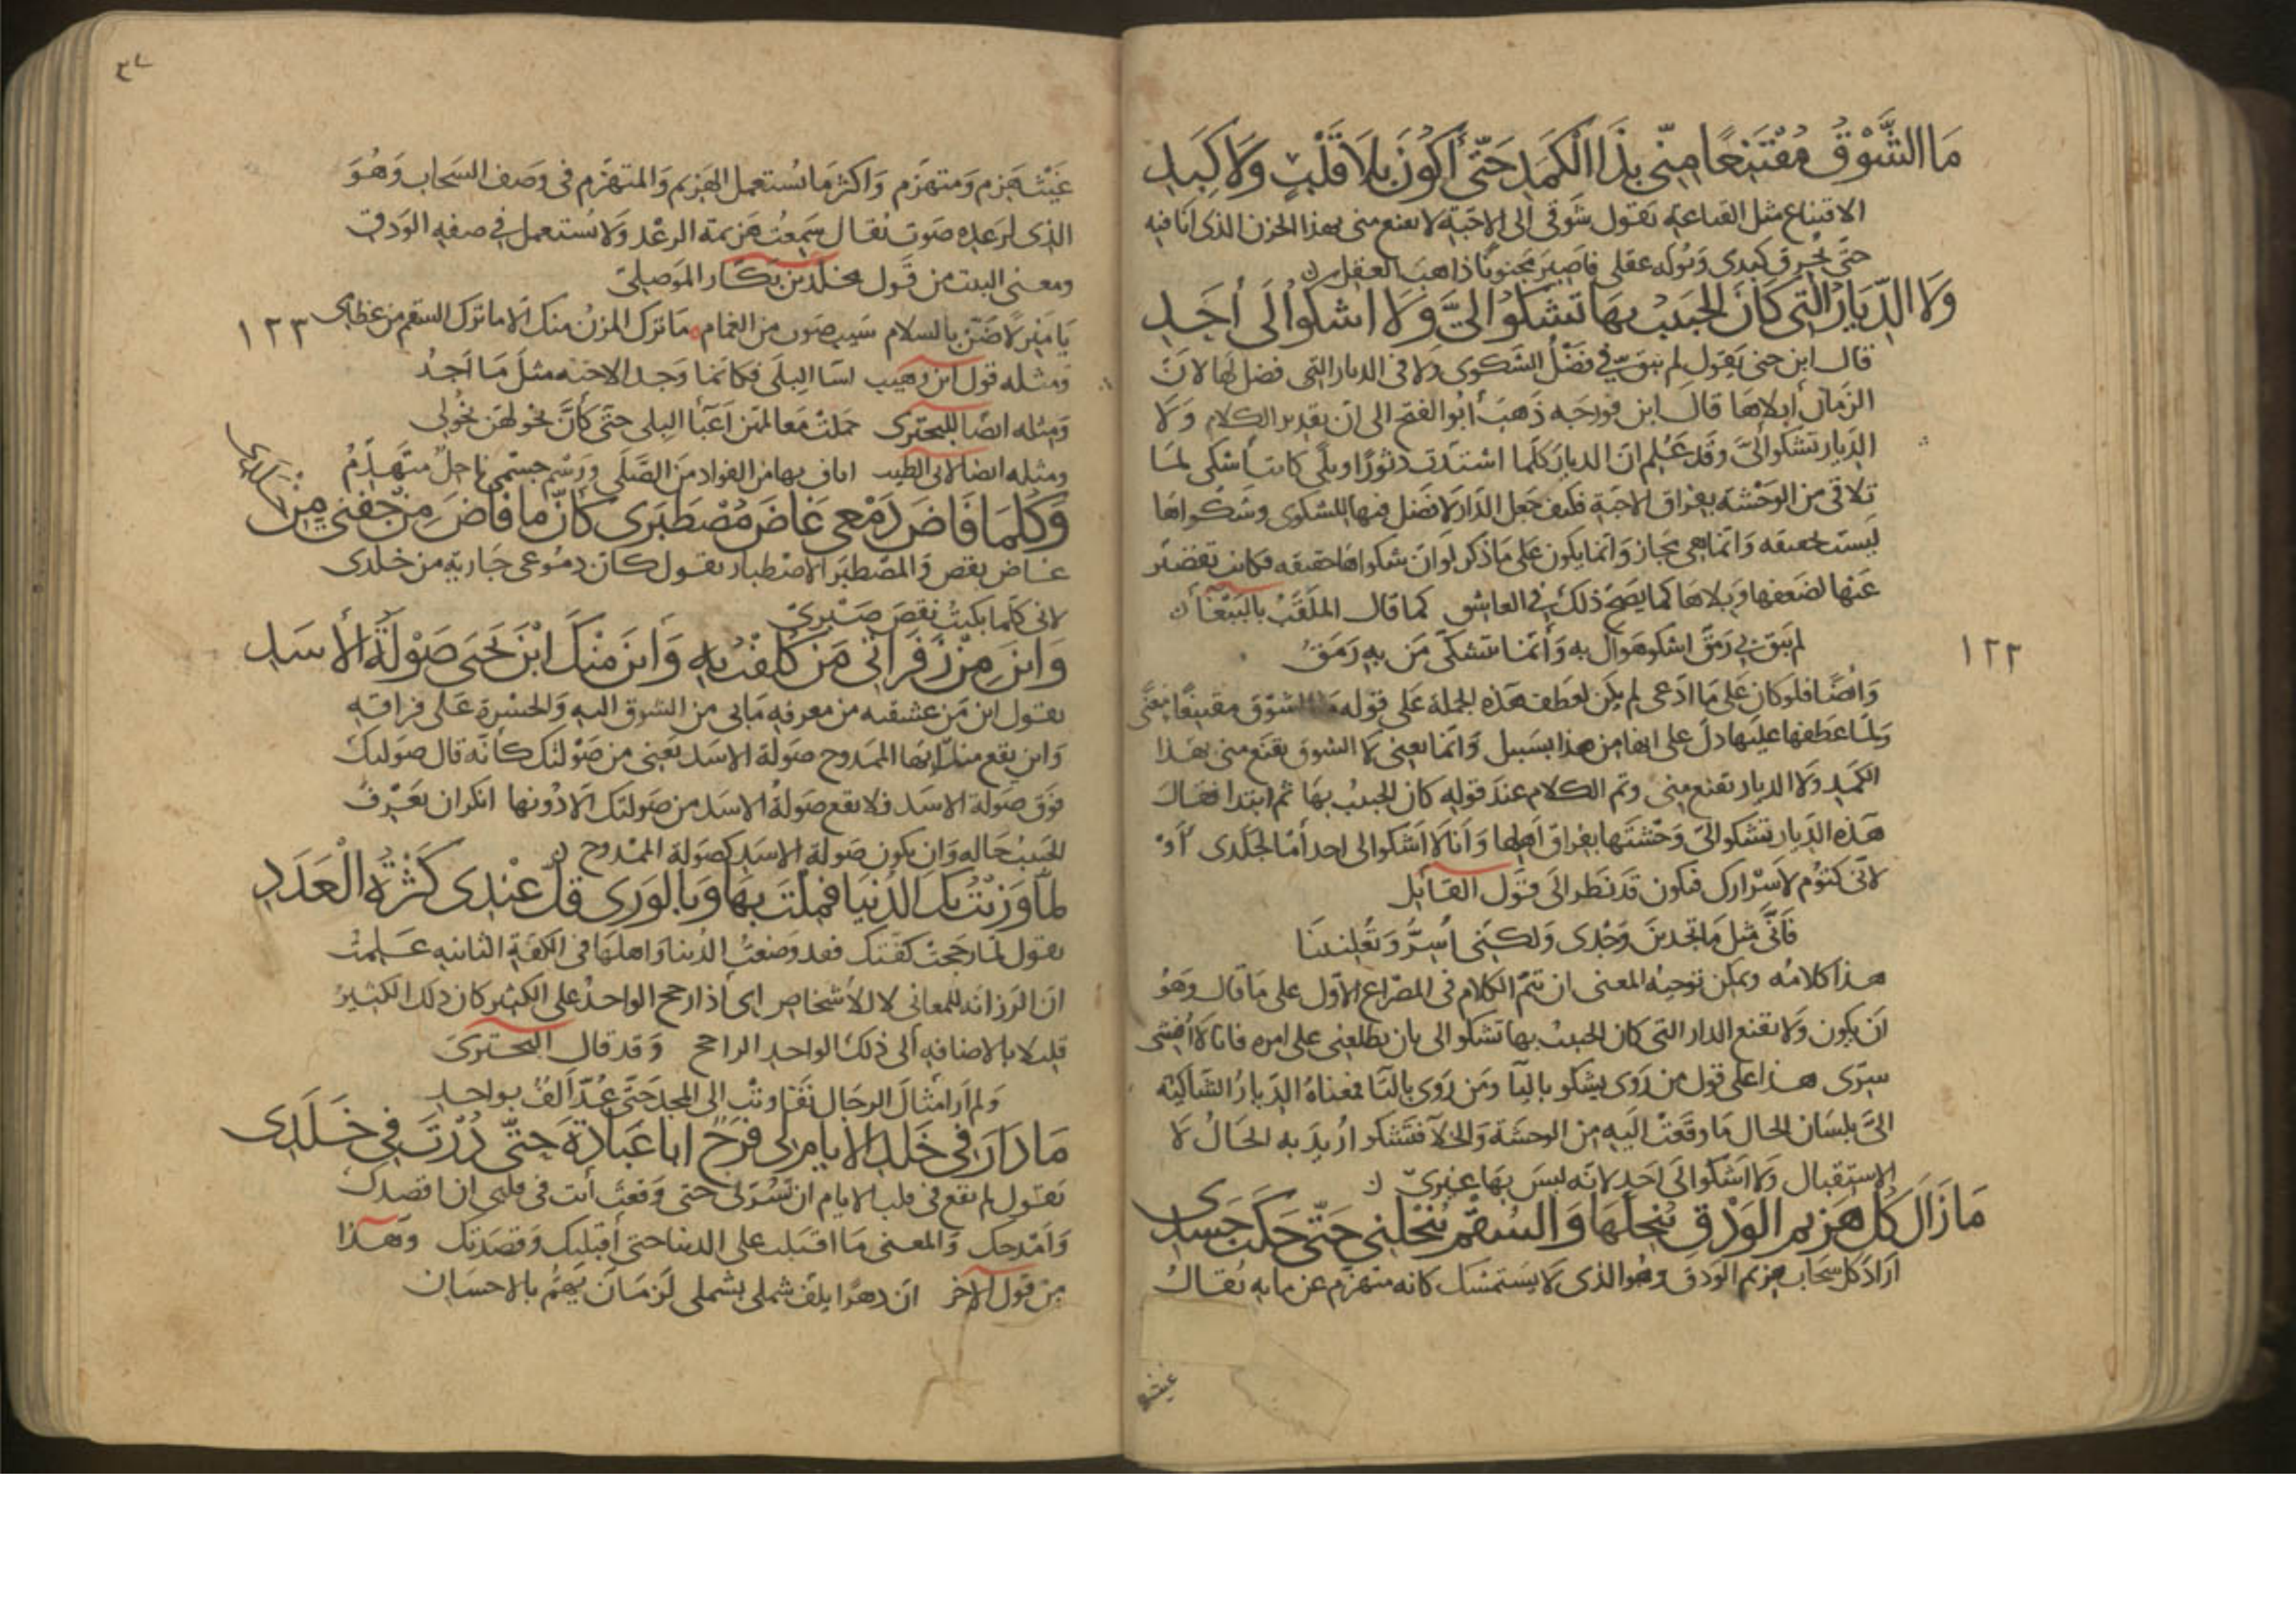 مَا الشَّوْقُ مُقْتَنِعًا مِنّى بِذَا الْكَمَدِ حَتّى أَكُونَ بِلَا قَلْبٍ وَلَا كَبِدِ
الاقتناع مثل القناعة يقول شوقى الى الاحبّة لا يقنع منى بهذا الحزن الذى انا فيه
حتى يحرق كبدى ويوله عقلى فاصير مجنونا ذاهب العقل ن
وَلَا الدِّيَارُ الَّتى كَانَ الْحَبِيْبُ بِهَا تَشْكُوْ الىَّ وَلَا اشْكُوا الَى أَحَدِ
قال ابن جنى يقول لم يبق فىّ فضل للشكوى ولا فى الديار التى فضل لها لانّ
الزمان أبلاها قال ابن فورجه ذهب أبو الفتح الى ان تقدير الكلام ولا
الديار تشكوا الىّ وقد عَلم ان الديار كلما اشتدت دثورا وبلى كانت أشكى لما
تلاقى من الوحشة بفراق الاحبة فكيف جعل الدار لا فضل فيها للشكوى وشكواها
ليست حقيقه وانما هى مجاز وانما يكون على ما ذكر لو ان شكواها حقيقه فكانت تقصر
عنها لضعفها وبلاها كما يصحّ ذلك فى العاشق كما قال الملقّب بالببّغا ن
لم يَبق لى رمق اشكو هواك به وَأنما يتشكّى مَن به رَمَقُ
١٢٢
وَايضًا فلو كان على ما ادّعى لم يكن لعطف هذه الجملة على قوله ما الشوق مقتنعا معنًى
ولما عطفها عليها دلّ على انها من هذا بسبيل وانما يعنى لا الشوق يقنع منى بهذا
الكمد ولا الديار تقنع منى وتم الكلام عند قوله كان الحبيب بها ثم ابتدا فقال
هذه الديار تشكوا الىّ وحشتها بفراق اهلها وانا لا اشكوا الى احد أمّا لجلدى أوْ
لانّى كتوم لاسرارك فيكون قد نظر الى قول القايل
فَانّى مثل ما تجدين وَجْدى وَلكنّى أُسِرُّ وَتُعْلِنِينَا
هذا كلامه ويمكن توجيه المعنى ان تتم الكلام فى المصراع الاول على ما قال وهو
ان يكون ولا تقنع الدار التى كان الحبيب بها تشكو الى بان يطلعنى على امره فانا لا أفشى
سرّى هذا على قول من روى يشكو باليا ومن روى بالتا فمعناه الديار الشاكية
الىّ بلسان الحال ما دفعت اليه من الوحشة والخلا فتشكو اريد به الحال لا
الاستقبال ولا اشكوا الى احد لانه ليس بها غيرى ن
مَا زَالَ كُلُّ هَزِيمِ الْوَدْقِ يُنْحِلُهَا وَالسُّقْمُ يُنْحِلُنى حَتّى حَكَتْ جَسَدِى
اراد كل سحاب هزيم الودق وهو الذى لا يستمسك كانه متهزم عن مايه يقال
غيث
٣٧
غَيْث هَزِم ومتهزّم واكثر ما يُستعمل الهزيم والمتهزم فى وصف السحاب وهُو
الذى لرعده صوت يقال سمعت هزيمة الرعد ولا يُستعمل فى صفه الودق
ومعنى البيت من قول مخلد بن بكار الموصلى
يَا منزلاً ضَنّ بالسلام سيب صوب من الغمام ما ترك المزن منك الا ما ترك السقم من عظامى
١٢٣
ومثله قول ابن وهيب اسا البلى فكانما وجد الاحبّه مثل ما أجدُ
ومثله ايضا للبحترى حملت معالمهن أعبآ البلى حتى كأنّ نحولهن نحولى
ومثله ايضا لابى الطيب اثاف بها من الفواد من الصَّلَى ورسم جسمى ناحل متهدّمُ
وَكُلَّمَا فَاضَ دَمْعى غَاضَ مُصْطَبَرى كَأنَّ مَا فَاضَ مِنْ جَفْنى مِنْ جَلَدى
غاض نقص والمصطبر الاصطبار يقول كان دموعى جارية من خلدى
لانى كلما بكيت نقص صبرى
وَاينَ مِنْ زَفَرَاتى مَنْ كَلِفْتُ بِهِ وَأينَ مِنْكَ ابْنَ يَحْيى صَوْلَةُ الأسَدِ
يقول اين من عشقته من معرفه ما بى من الشوق اليه والحسرة على فراقه
واين يقع منك ايها الممدوح صولة الاسد يعنى من صولتك كأنه قال صولتك
فوق صولة الاسد فلا تقع صولةُ الاسد من صولتك الا دُونها انكر ان يعرف
الحبيب حاله وان يكون صولة الاسد كصولة الممدوح ن
لمّا وَزَنْتُ بِكَ الدُّنْيَا فَمِلْتَ بِهَا وَبِالْوَرى قَلَّ عِنْدى كَثْرَةُ الْعَدَدِ
يقول لما رجحت كفتك فقد وضعت الدنيا واهلها فى الكفة الثانيه علمت
ان الرزانه للمعانى لا للأشخاص اى اذا رجح الواحد على الكثير كان ذلك الكثير
قليلا بالاضافه الى ذلك الواحد الراجح وقد قال البحترى
وَلم أرَ امثالَ الرجال تفاوتت الى المجد حتى عُدّ ألفٌ بواحدِ
مَا دَارَ فى خَلَدِ الايامِ لى فَرَحٌ ابا عُبَادَةَ حَتّى دُرْتَ فى خَلَدِى
يقول لم يقع فى قلب الايام ان تسرنى حتى وقعتَ أنت فى قلبى ان اقصدك
وامدحك والمعنى ما اقبلت على الدنيا حتى أقبلتك وقصدتك وهذا
من قول الآخر ان دهرًا يلفّ شملى بشملى لزمان يهمّ بالاحسان